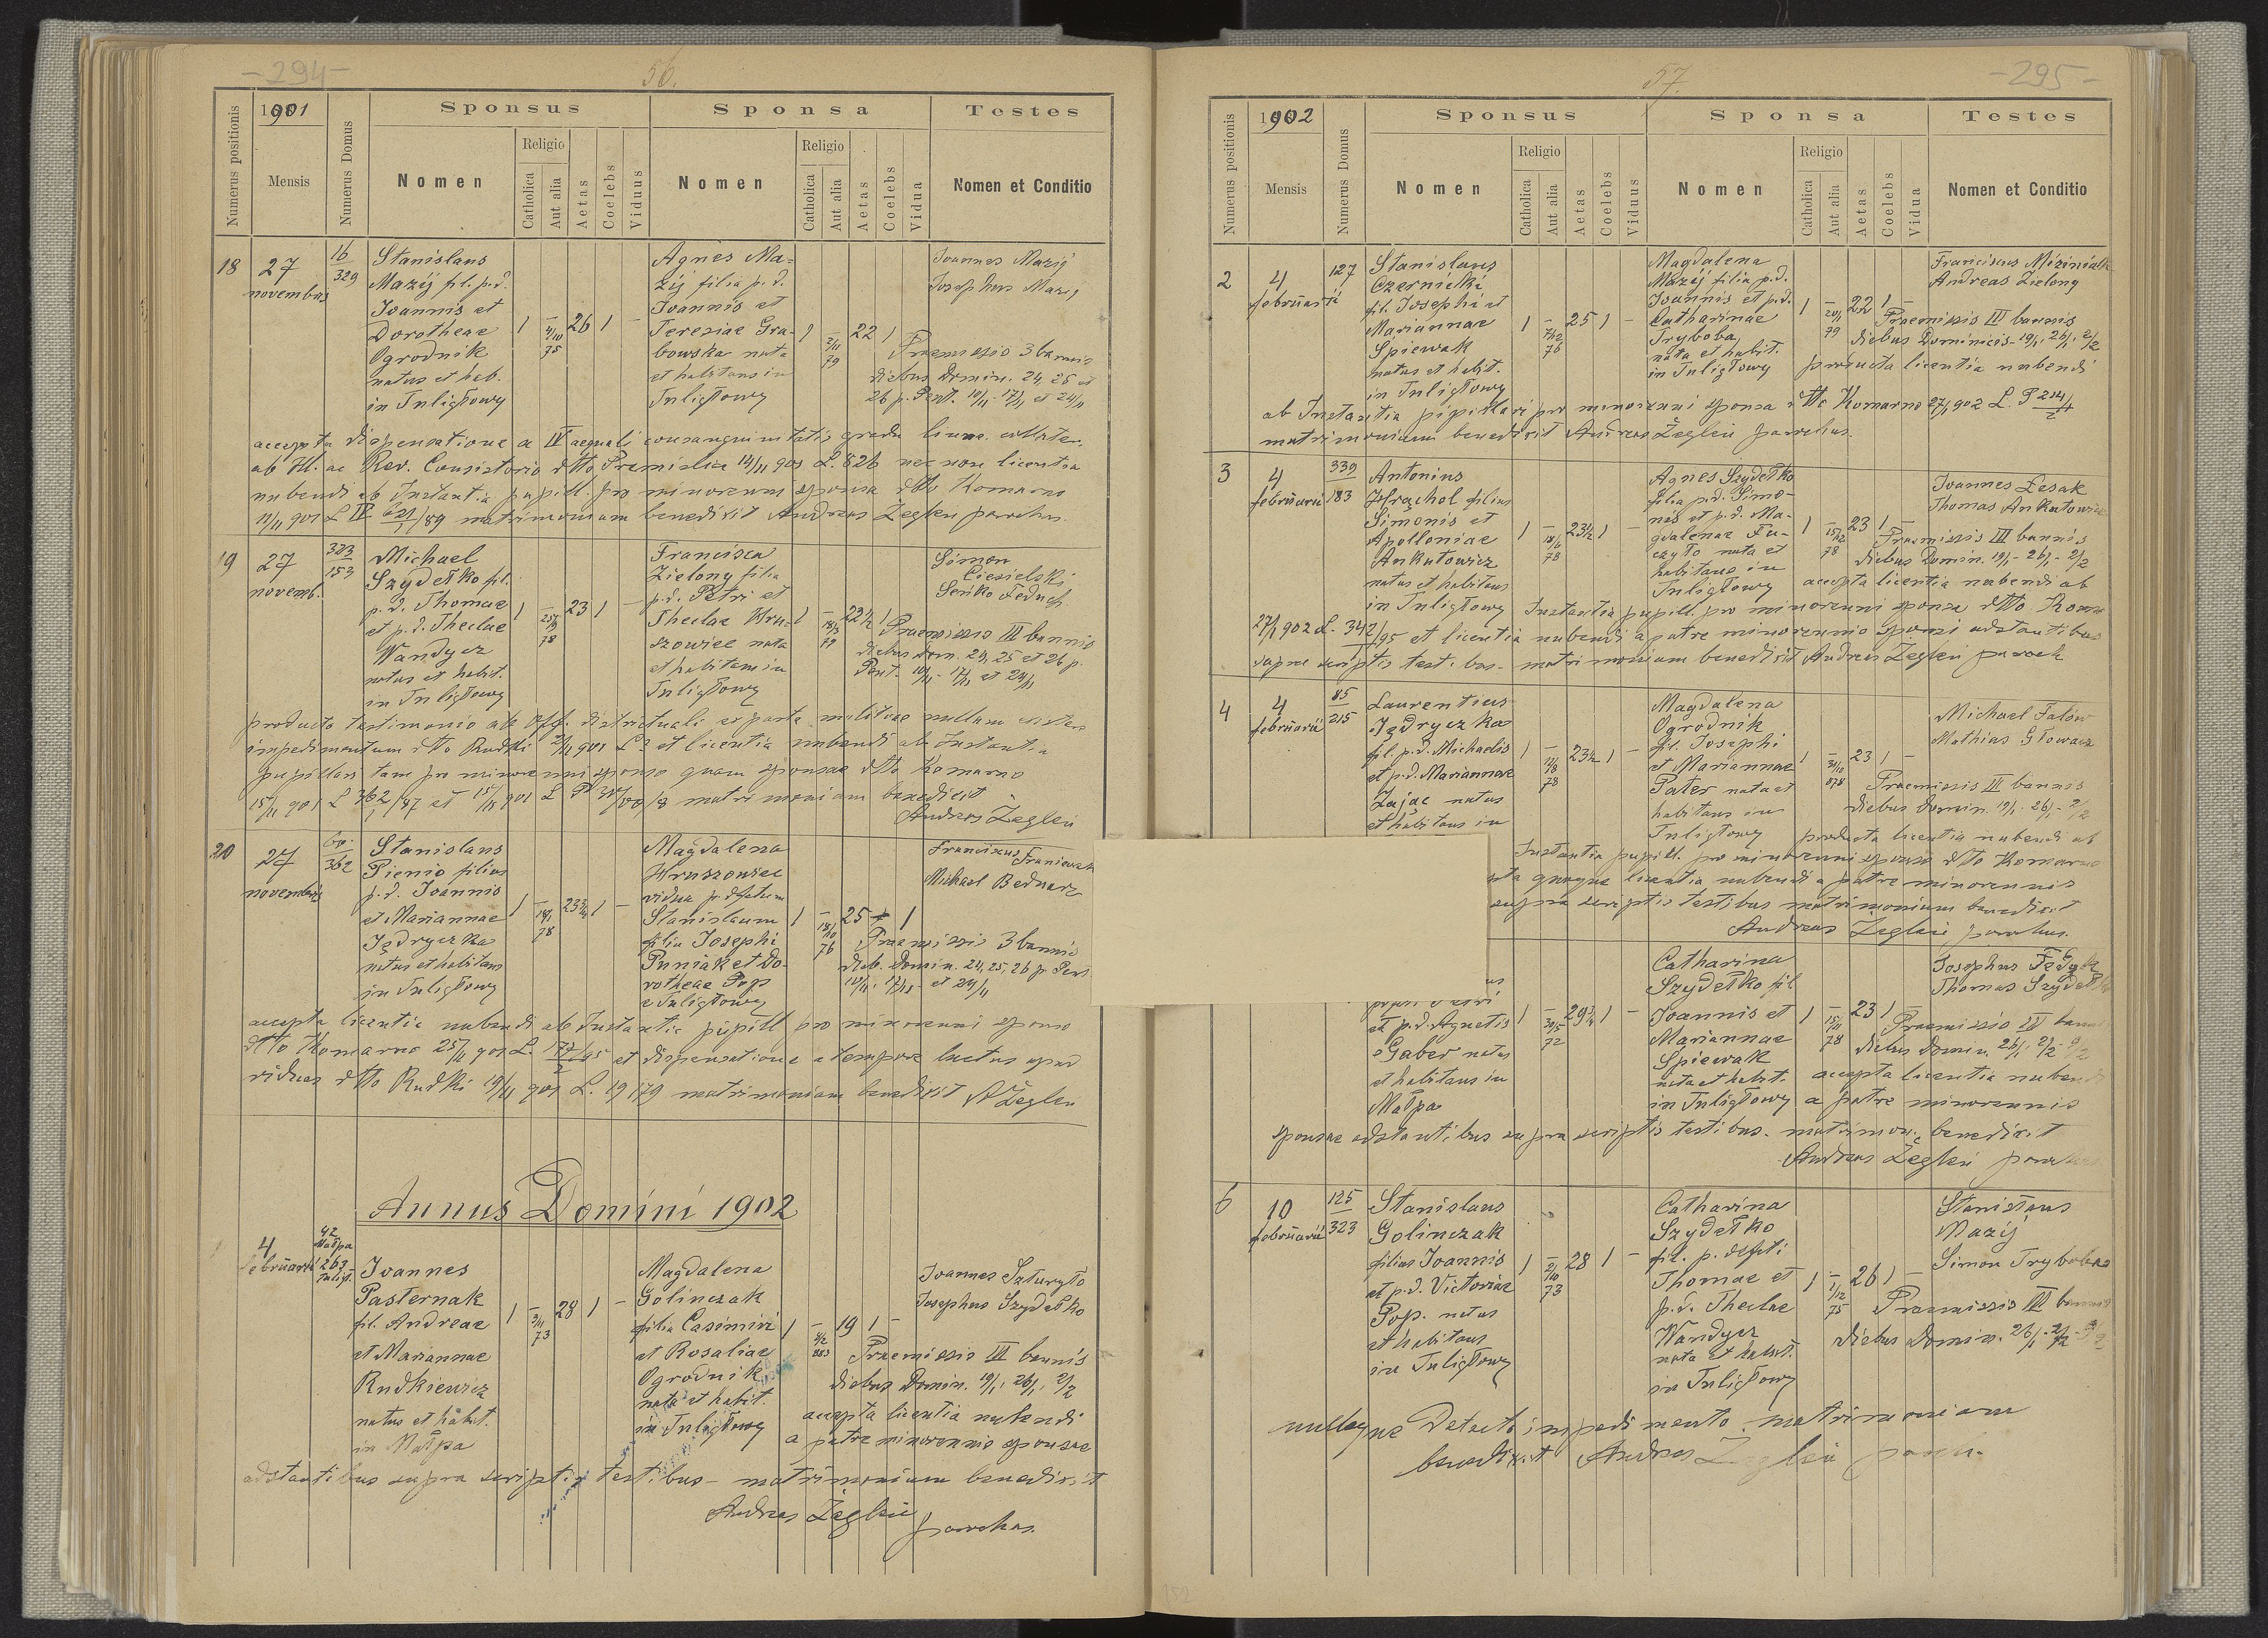 -294-
56.
Numerus positionis
1901
Mensis
Numerus Domus
Sponsus
Nomen
Religio
Catholica
Aut alia
Aetas
Coelebs
Viduus
Sponsa
Nomen
Religio
Catholica
Aut alia
Aetas
Coelebs
Vidua
Testes
Nomen et Conditio
18
27
novembris
16
329
Stanislaus
Mazij fil. p.d.
Joannis et
Dorotheae
Ogrodnik
natus et hab.
in Tuligłowy
1
26
1
Agnes Ma=
zij filia p.d.
Joannis et
Teresiae Gra-
bowska nata
et habitans in
Tuligłowy
1
2/11
79
22
1
Joannes Mazij
Josephus Mazij
Praemissis 3 bannis
diebus Domin. 24, 25 et
26 p. Pent. 10/11 - 17/11 et 24/11
accepta dispensatione a IV aequali consanguinitatis gradu lineae collater.
ab Ill. ac Rev. Consistorio dtto Premisliae 14/11 901 L. 826 nec non licentia
nubendi ab Instantia pupill. pro minorenni sponsa dtto Komarno
matrimonium benedixit Andreas Żegleń parochus.
19
27
novemb.
323
153
Michael
Szydełko fil.
p.d. Thomae
et p.d. Theclae
Wandycz
natus et habit.
in Tuligłowy
1
78
23
1
Francisca
Zielony filia
p.d. Petri et
Theclae Hru-
szowiec nata
et habitans in
Tuligłowy
1
79
22 1/2
Simon
Ciesielski
Seńko Feduch
Praemissis III bannis
diebus Dom. 24, 25 et 26 p.
Pent. 10/11 - 17/11 et 24/11
producto testimonio ab Off. districtuali ex parte militiae nullum existere
impedimentum dtto Rudki 2/11 901 L? et licentia nubendi ab Instantia
pupillari tam pro minorenni sponso quam sponsae dtto Komarno
matrimonium benedixit
Andreas Żegleń
20
27
novembris
362
Stanislaus
Pienio filius
p.d. Joannis
et Mariannae
Jędryczka
natus et habitans
in Tuligłowy
1
18/1
78
23 3/4
1
Magdalena
Hruszowiec
vidua p. defctum
Stanislaum
filia Josephi
Puniak et Do-
rotheae Pop
e Tuligłowy
1
18/10
76
25
1
Franciscus Franiewski
Michael Bednarz
Praemissis 3 bannis
dieb. Domin. 24, 25, 26 p. Pent.
10/11 - 17/11 - et 24/11
accepta licentia nubendi ab Instantia pupill pro minorenni sponso
dtto Komarno 25/11 901 L. 177/95 et dispensatione a tempore luctus apud
viduas dtto Rudki 19/11 901 L. 19179 matrimonium benedixit A Żegleń
Annus Domini 1902
4
februarii
42
Małpa
263
Tuligł.
Joannes
Pasternak
fil. Andreae
et Mariannae
Rudkiewicz
natus et habit.
in Małpa
1
3/11
73
28
1
Magdalena
Golinczak
filia Casimiri
et Rosaliae
Ogrodnik
nata et habit.
in Tuligłowy
1
2/2
883
19
1
Joannes Saturyło
Josephus Szydełko
Praemissis III bannis
diebus Domin. 19/1, 26/1, 2/2
accepta licentia nubendi
a patre minorennis sponsae
adstantibus supra scriptis testibus - matrimonium benedixit
Andreas Żegleń
parochus.
57.
-295-
Numerus positionis
1902
Mensis
Numerus Domus
Sponsus
Nomen
Religio
Catholica
Aut alia
Aetas
Coelebs
Viduus
Sponsa
Nomen
Religio
Catholica
Aut alia
Aetas
Coelebs
Vidua
Testes
Nomen et Conditio
2
4
februarii
127
Stanislaus
Czernicki
fil. Josephi et
Mariannae
Spiewak
natus et habit.
in Tuligłowy
1
76
25
1
Magdalena
Mazij filia p.d.
Joannis et p.d.
Catharinae
Tryboba
nata et habit.
in Tuligłowy
1
20/1
79
22
1
Andreas Zielony
Praemissis III bannis
diebus Dominicis - 19/1, 26/1, 2/2
producta licentia nubendi
ab Instantia pupillari pro minorenni sponsa dtto Komarno 27/1 902 L.
matrimonium benedixit Andreas Żegleń parochus.
3
4
februarii
339
183
Antonius
Hrąchol filius
Simonis et
Apolloniae
Ankutowicz
natus et habitans
in Tuligłowy
1
78
23 1/2
1
Agnes Szydełko
filia p.d. Simo-
nis et p.d. Ma-
gdalenae Fu-
czyło nata et
habitans in
Tuligłowy
1
15/12
78
23
1
Joannes Lesak
Thomas Ankutowicz
Praemissis III bannis
diebus Domin. 19/1 - 26/1 - 2/2
accepta licentia nubendi ab
Instantia pupill. pro minorenni sponsa dtto. Koma
27/1 902 L. 342/95 et licentia nubendi a patre minorennis sponsi adstantibus
supra scriptis testibus - matrimonium benedixit Andreas Żegleń paroch
4
4
februarii
85
215
Laurentius
Jędryczka
fil. p.d. Michaelis
et p.d. Mariannae
Zając natus
et habitans in
1
78
23 1/2
1
Magdalena
Ogrodnik
fil. Josephi
et Mariannae
Pater nata et
habitans in
Tuligłowy
1
31/10
878
23
1
Michael Fatów
Mathias Głowacz
Praemissis III bannis
diebus Domin. 19/1 - 26/1 - 2/2
producta licentia nubendi ab
Instantia pupill. pro minorenni sponso dtto Komarno
quoque licentia nubendi a patre minorennis
supra scriptis testibus matrimonium benedixit
Andreas Żegleń parochus.
et p.d. Agnetis
Gaber natus
et habitans in
Małpa
1
30/5
72
29 3/4
1
Catharina
Szydełko fil
Joannis et
Mariannae
Spiewak
nata et habit.
in Tuligłowy
1
78
23
1
Josephus Fedyk
Thomas Szydełko
Praemissis III bann
diebus Domin. 26/1 2/2 - 9/2
accepta licentia nubendi
a patre minorennis
sponsae adstantibus supra scriptis testibus - matrimon. benedixit
Andreas Żegleń parochus
6
10
februarii
125
323
Stanislaus
Golinczak
filius Joannis
et p.d. Victoriae
Pop. natus
et habitans
in Tuligłowy
1
2/10
73
28
1
Catharina
Szydełko
fil. p. defcti
Thomae et
p.d. Theclae
Wandycz
nata et habit.
in Tuligłowy
1
1/12
75
26
1
Stanislaus
Mazij
Simon Tryboba
Praemissis III bannis
diebus Domin. 26/1 - 2/2 - 9/2
nulloque detecto impedimento matrimonium
benedixit Andreas Żegleń paroch.